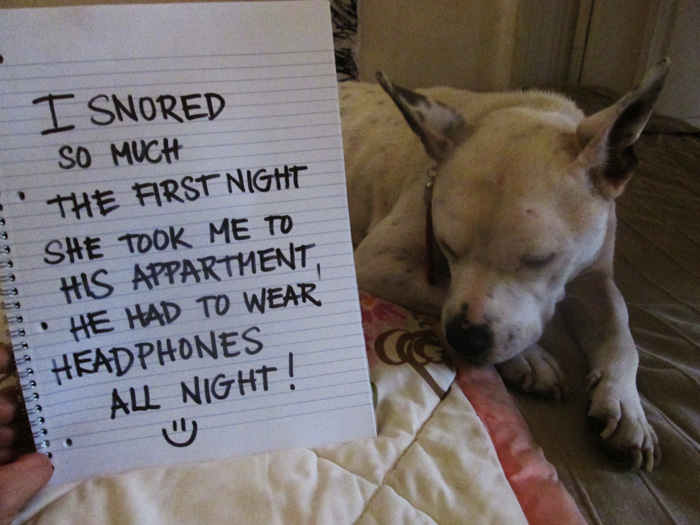 I SNORED
SO MUCH
THE FIRST NIGHT
SHE TOOK ME TO
HIS APPARTMENT,
HE HAD TO WEAR
HEADPHONES
ALL NIGHT!